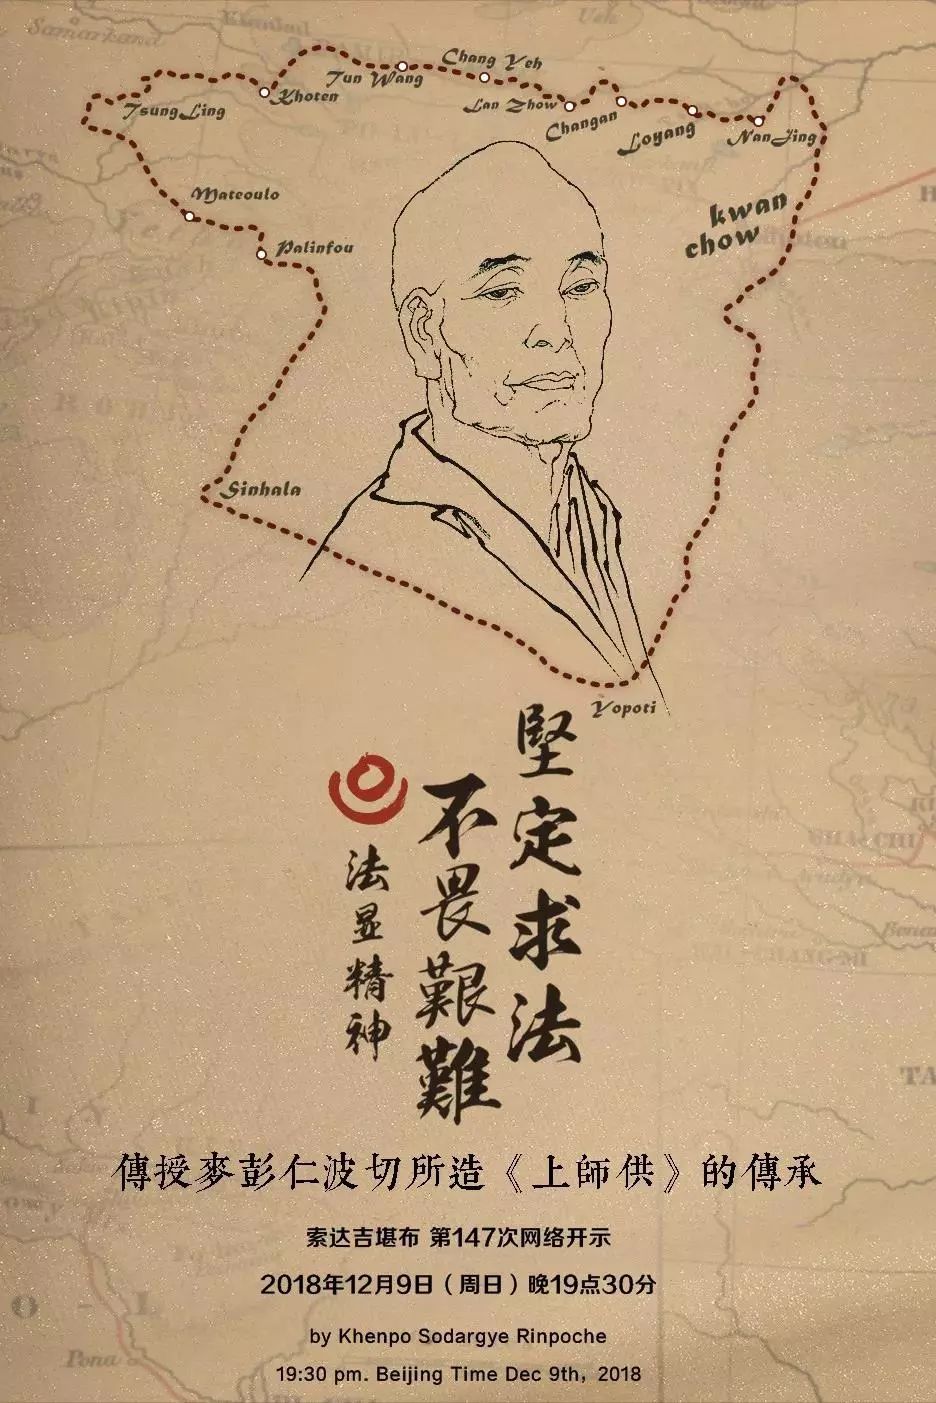 Samarkand
Chang Yeh
Tun Wang
Khoten
Tsung Ling
Lan Zhow
Changan
Loyang
NanJing
Mateoulo
kwan
chow
Palinfou
Sinhala
Yopoti
堅定求法
不畏艱難
法显精神
傳授麥彭仁波切所造《上師供》的傳承
索达吉堪布 第147次网络开示
2018年12月9日（周日）晚19点30分
by Khenpo Sodargye Rinpoche
19:30 pm. Beijing Time Dec 9th, 2018
Pona